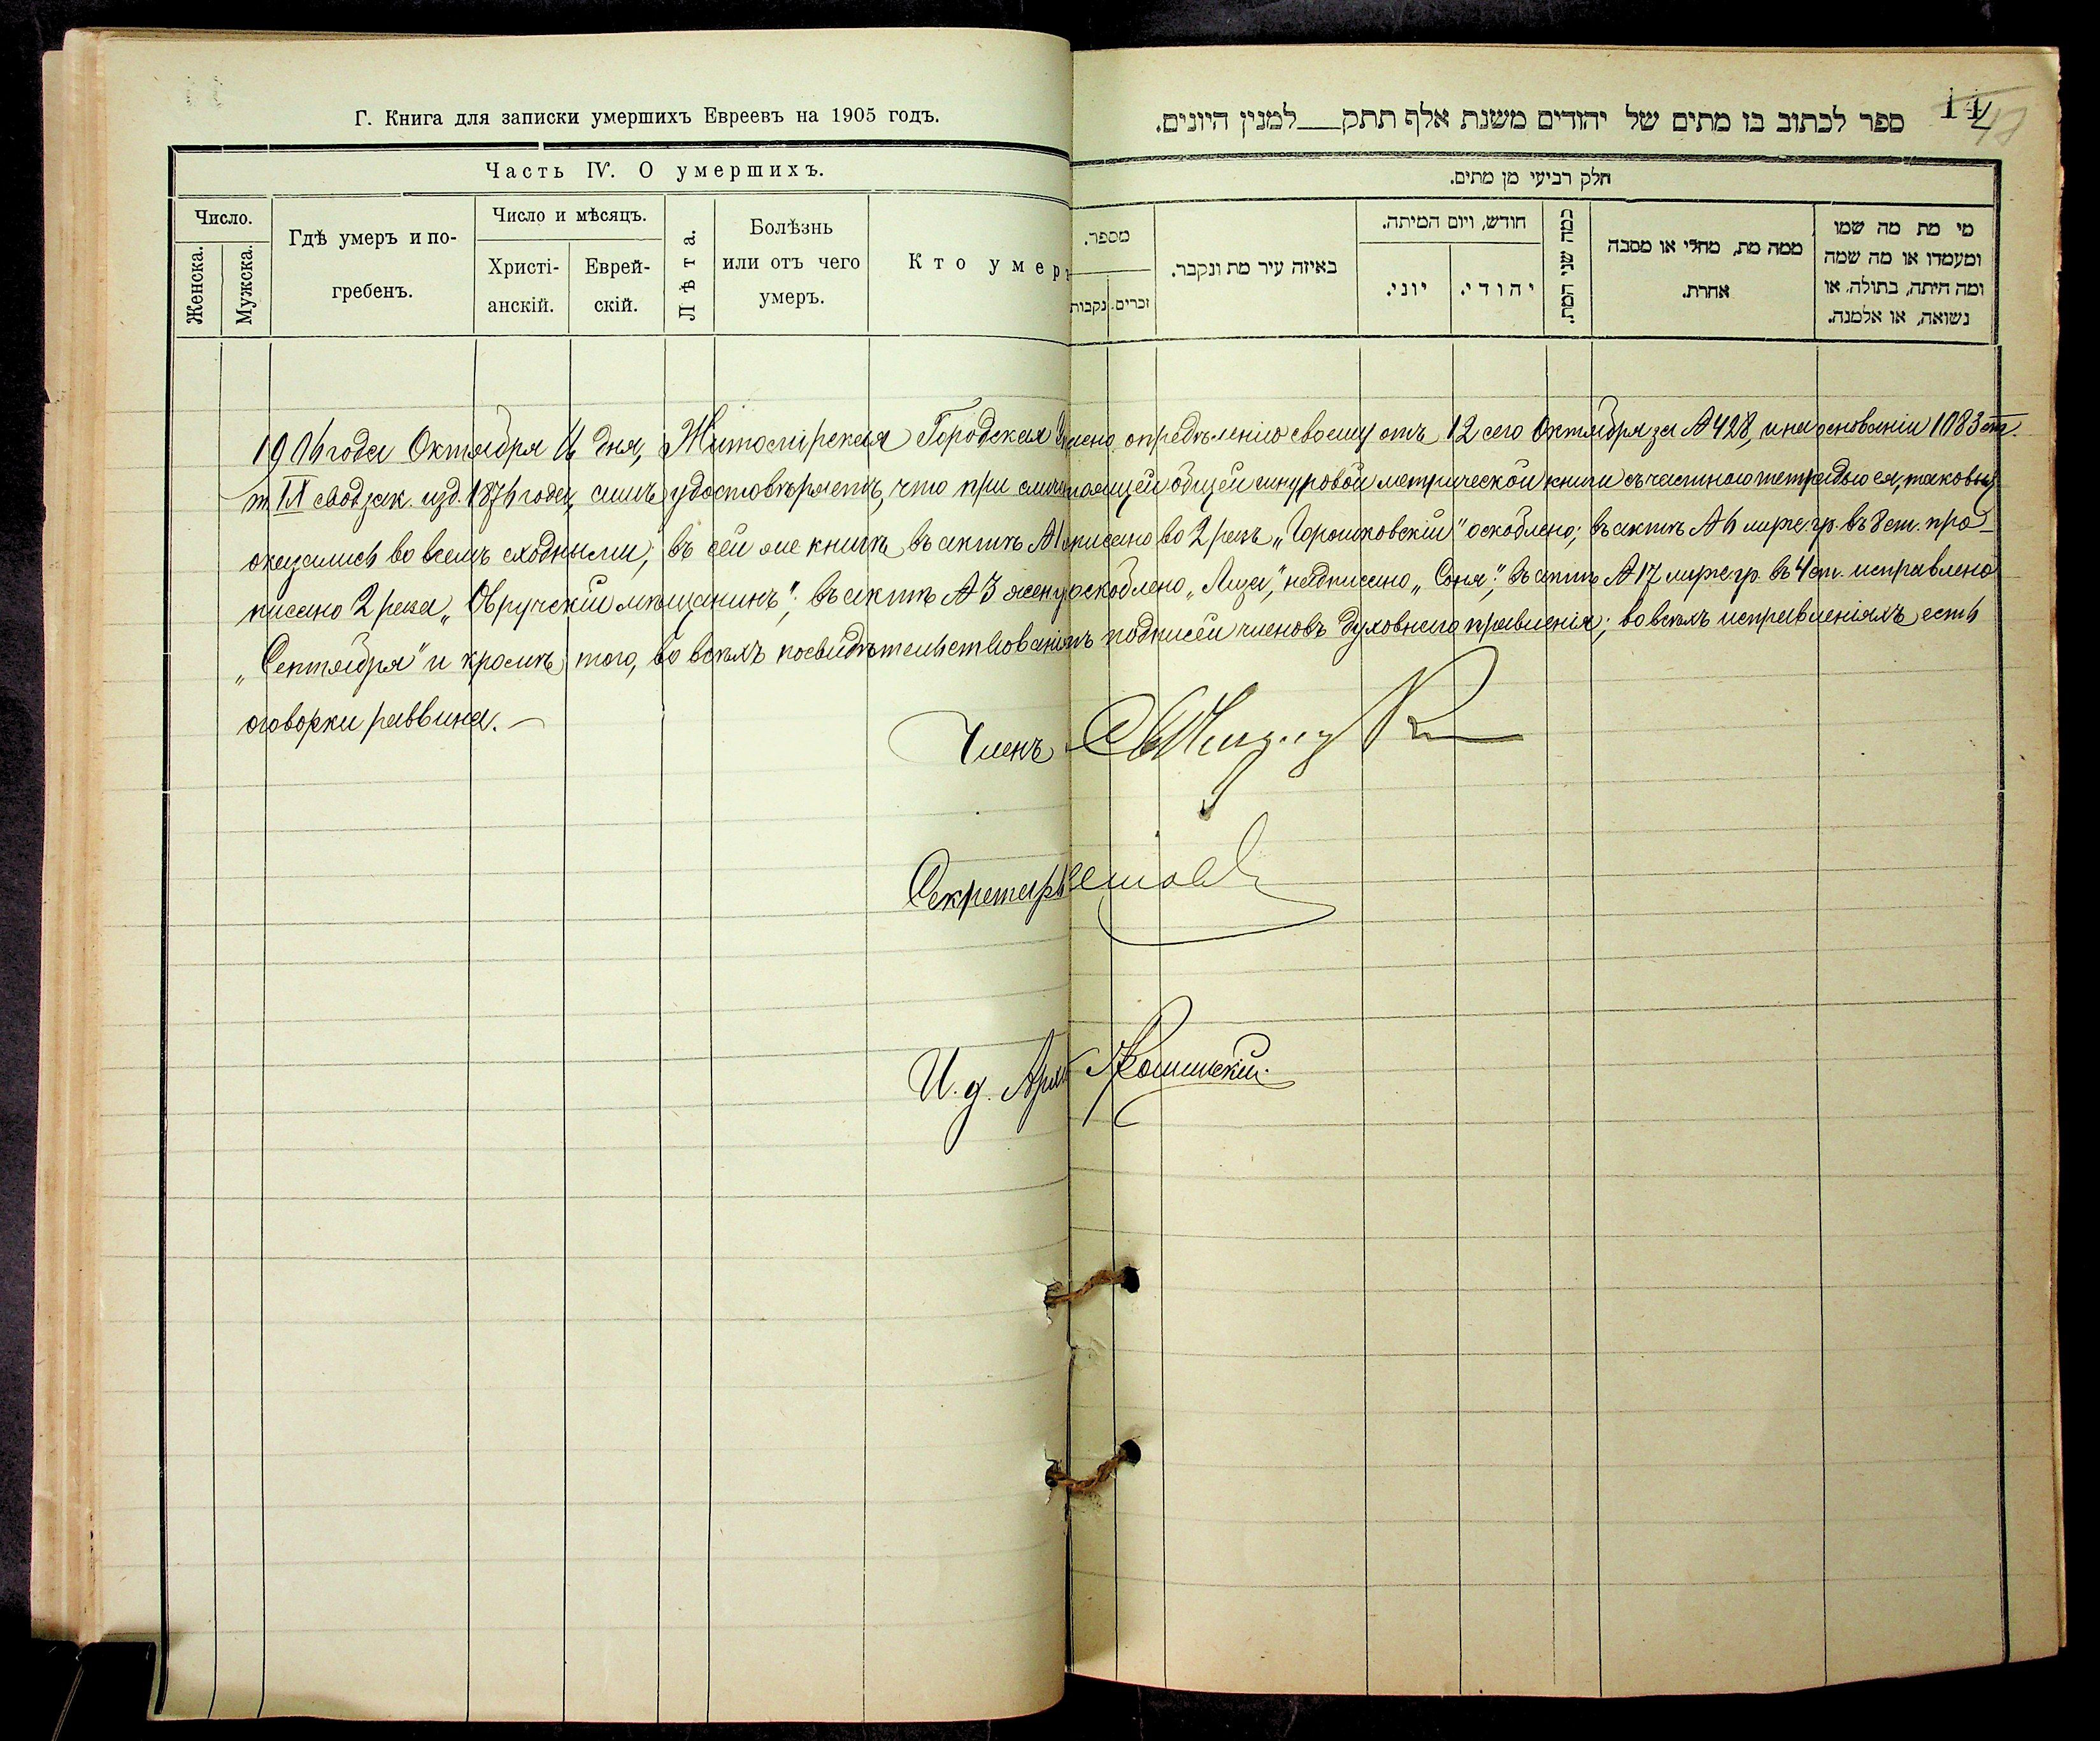 Г. Книга для записки умершихъ Евреевъ на 1905 годъ.
Часть IV. О умершихъ.
Число.
Женска.
Мужска.
Гдѣ умеръ и по-
гребенъ.
Число и мѣсяцъ.
Христі-
анскій.
Еврей-
скій.
Лѣта.
Болѣзнь
или отъ чего
умеръ.
Кто умер
ספר לכתוב בו מתים של יהודים משנת אלף תתק___למנין היונים.
14
חלק רביעי מן מתים.
מספר.
זכרים.
נקבות
באיזה עיר מת ונקבר.
חודש, ויום המיתה.
יוני.
יהודי.
כמה שני המת.
ממה מת, מחלי או מסבה
אחרת.
מי מת מה שמו
ומעמדו או מה שמה
ומה היתה, בתולה, או
נשואה, או אלמנה.
1906 года Октября дня, Житомірская Городская опредѣленію своему отъ 12 сего Октября за № 428, и на основаніи 1083 ст.
т. IX свод зак. изд. 1876 года, симъ удостовѣряетъ, что при общей шнуровой метрической книги съ частною тетрадью ея, таковыя
оказались во всемъ сходными; въ сей же книгѣ въ актѣ во 2 разъ „Горошковскій" оскоблено; въ актѣ № 6 муж. гр. въ 8 ст. про-
писано 2 раза „Овручскій мѣщанинъ"; въ актѣ № 3 женс оскоблено „Лиза", надписано „Соня"; въ актѣ № 17 муж. гр. въ 4 ст. исправлено
„Сентября" и кромѣ того, во всѣхъ посвидѣтельствованіяхъ подписей членовъ духовнаго правленія; во всѣхъ исправленіяхъ есть
оговорки раввина.—
Членъ
Секретарь
И. д. Арх